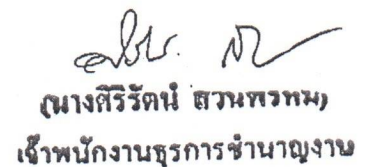 (นางศิริรัตน์ สวนพรหม)
เจ้าพนักงานธุรการชำนาญงาน